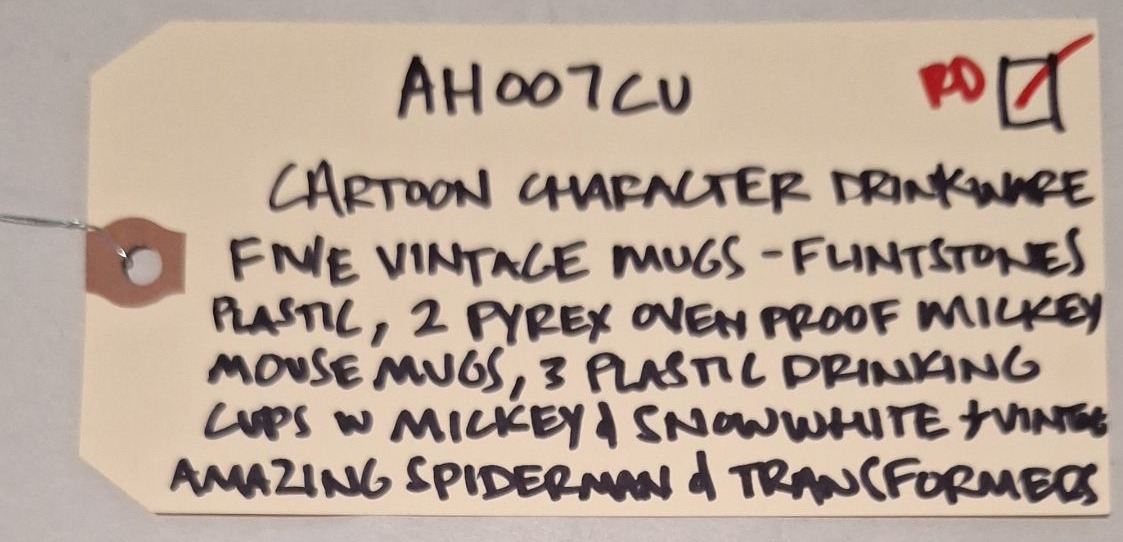 AH007CU RD
CARTOON CHARACTER DRINKWARE
FIVE VINTAGE MUGS - FLINTSTONES
PLASTIC, 2 PYREX OVEN PROOF MICKEY
MOUSE MUGS, 3 PLASTIC DRINKING
CUPS W MICKEY & SNOWWHITE + VINTGE
AMAZING SPIDERMAN & TRANSFORMERS